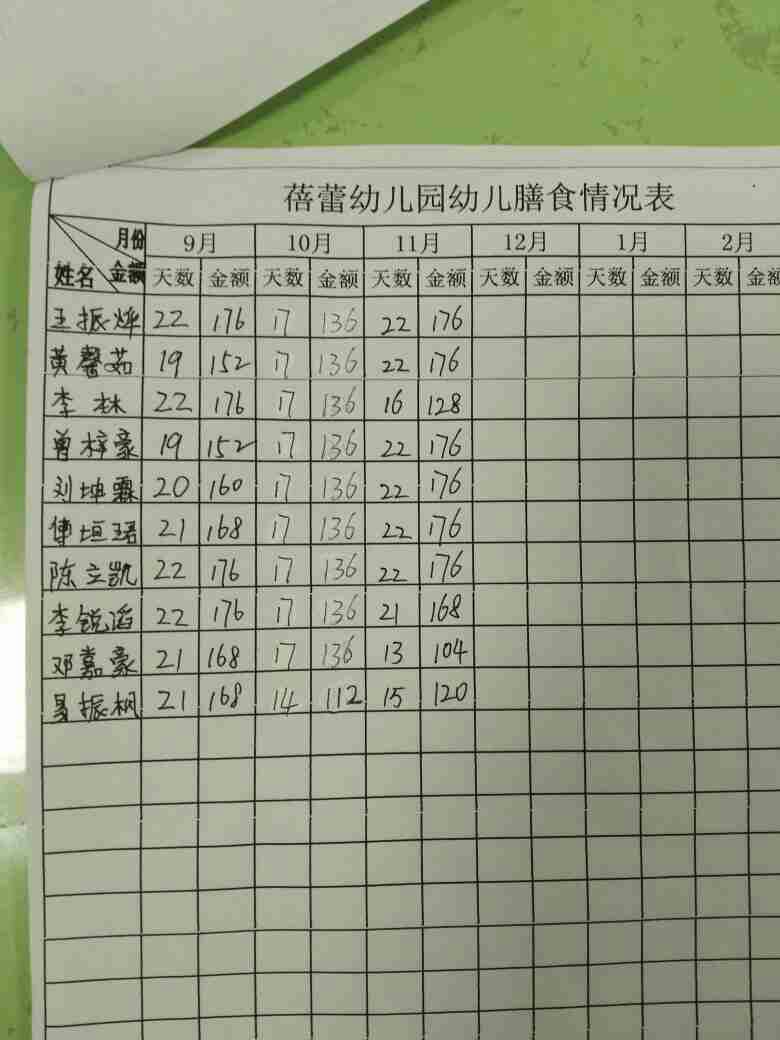 蓓蕾幼儿园幼儿膳食情况表
月份 9月 10月 11月 12月 1月 2月
姓名 金额 天数 金额 天数 金额 天数 金额 天数 金额 天数 金额 天数 金额
王振烨 22 176 17 136 22 176
黄馨茹 19 152 17 136 22 176
李林 22 176 17 136 16 128
曾梓豪 19 152 17 136 22 176
刘坤霖 20 160 17 136 22 176
傅垣珺 21 168 17 136 22 176
陈立凯 22 176 17 136 22 176
李锐滔 22 176 17 136 21 168
邓嘉豪 21 168 17 136 13 104
易振枫 21 168 14 112 15 120